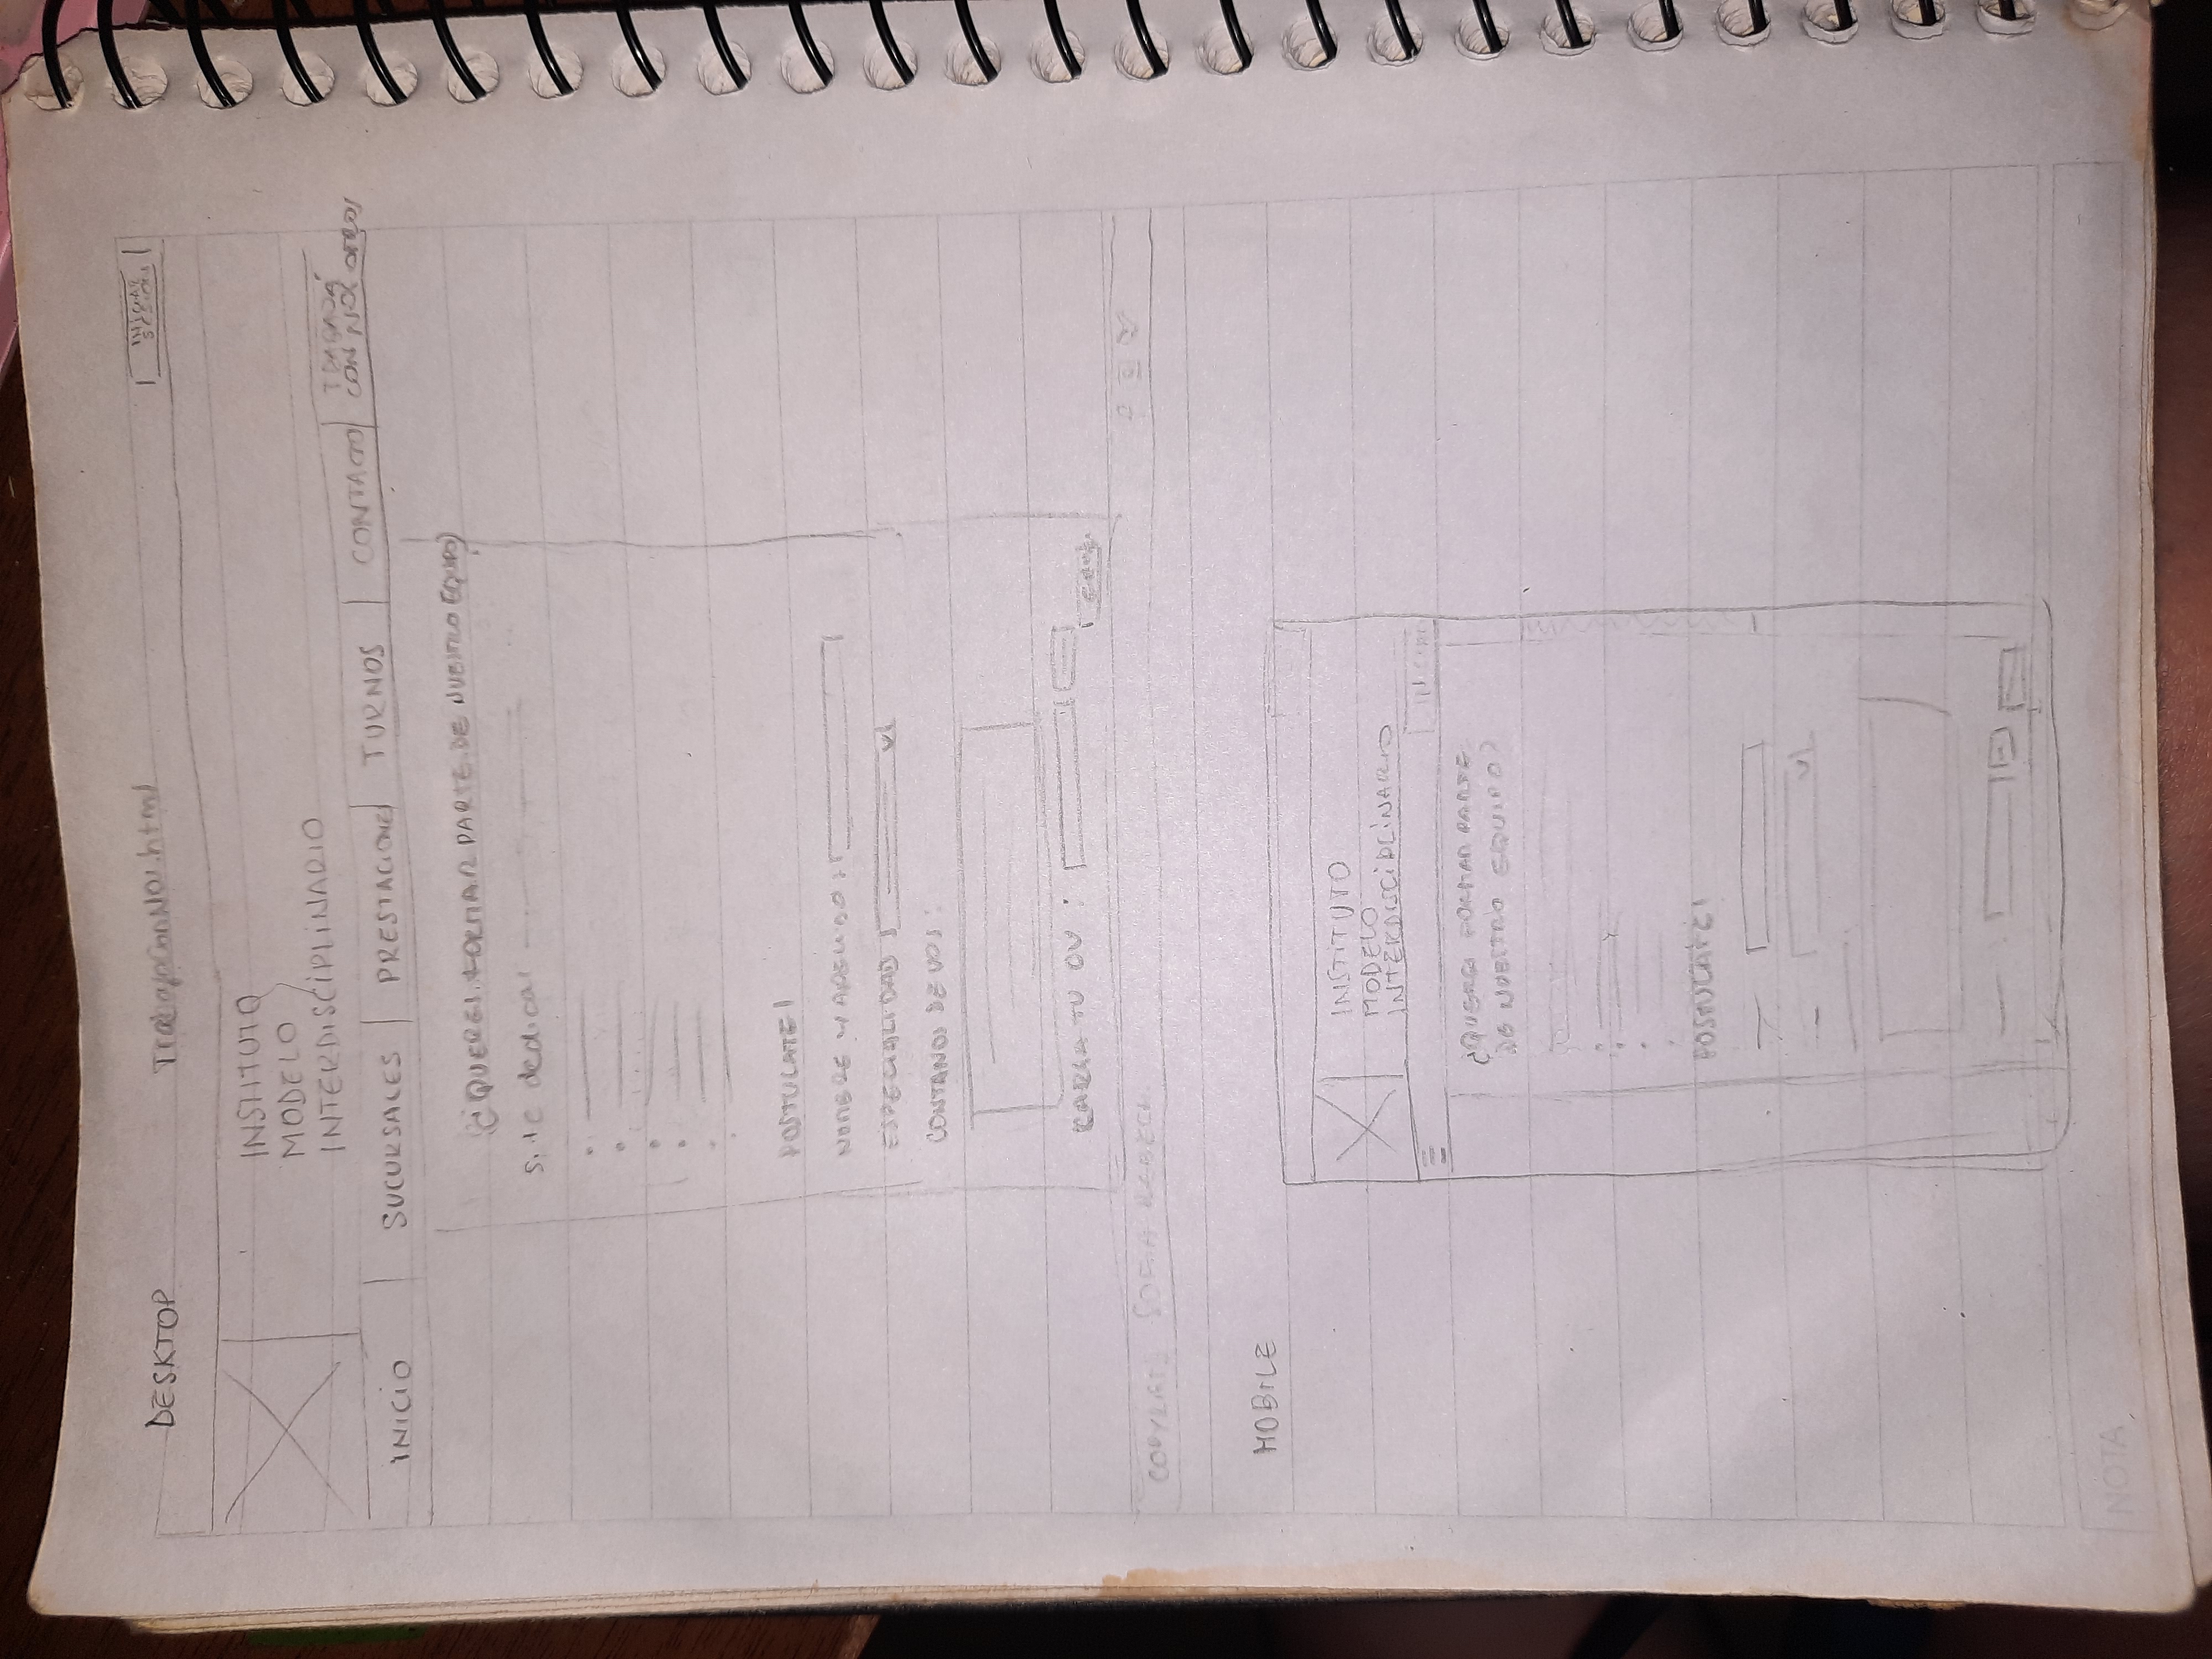 DESKTOP
TrabajaConNos.html
INICIAR
SESION
INSTITUTO
MODELO
INTERDISCIPLINARIO
INICIO
SUCURSALES
PRESTACIONES
TURNOS
CONTACTO
TRABAJÁ
CON NOSOTROS
¿QUERES FORMAR PARTE DE NUESTRO EQUIPO?
Si te dedicas
POSTULATE!
NOMBRE Y APELLIDO:
ESPECIALIDAD
CONTANOS DE VOS:
CARGA TU CV :
SOFIA
MOBILE
INSTITUTO
MODELO
INTERDISCIPLINARIO
¿QUERES FORMAR PARTE
DE NUESTRO EQUIPO?
POSTULATE!
NOTA